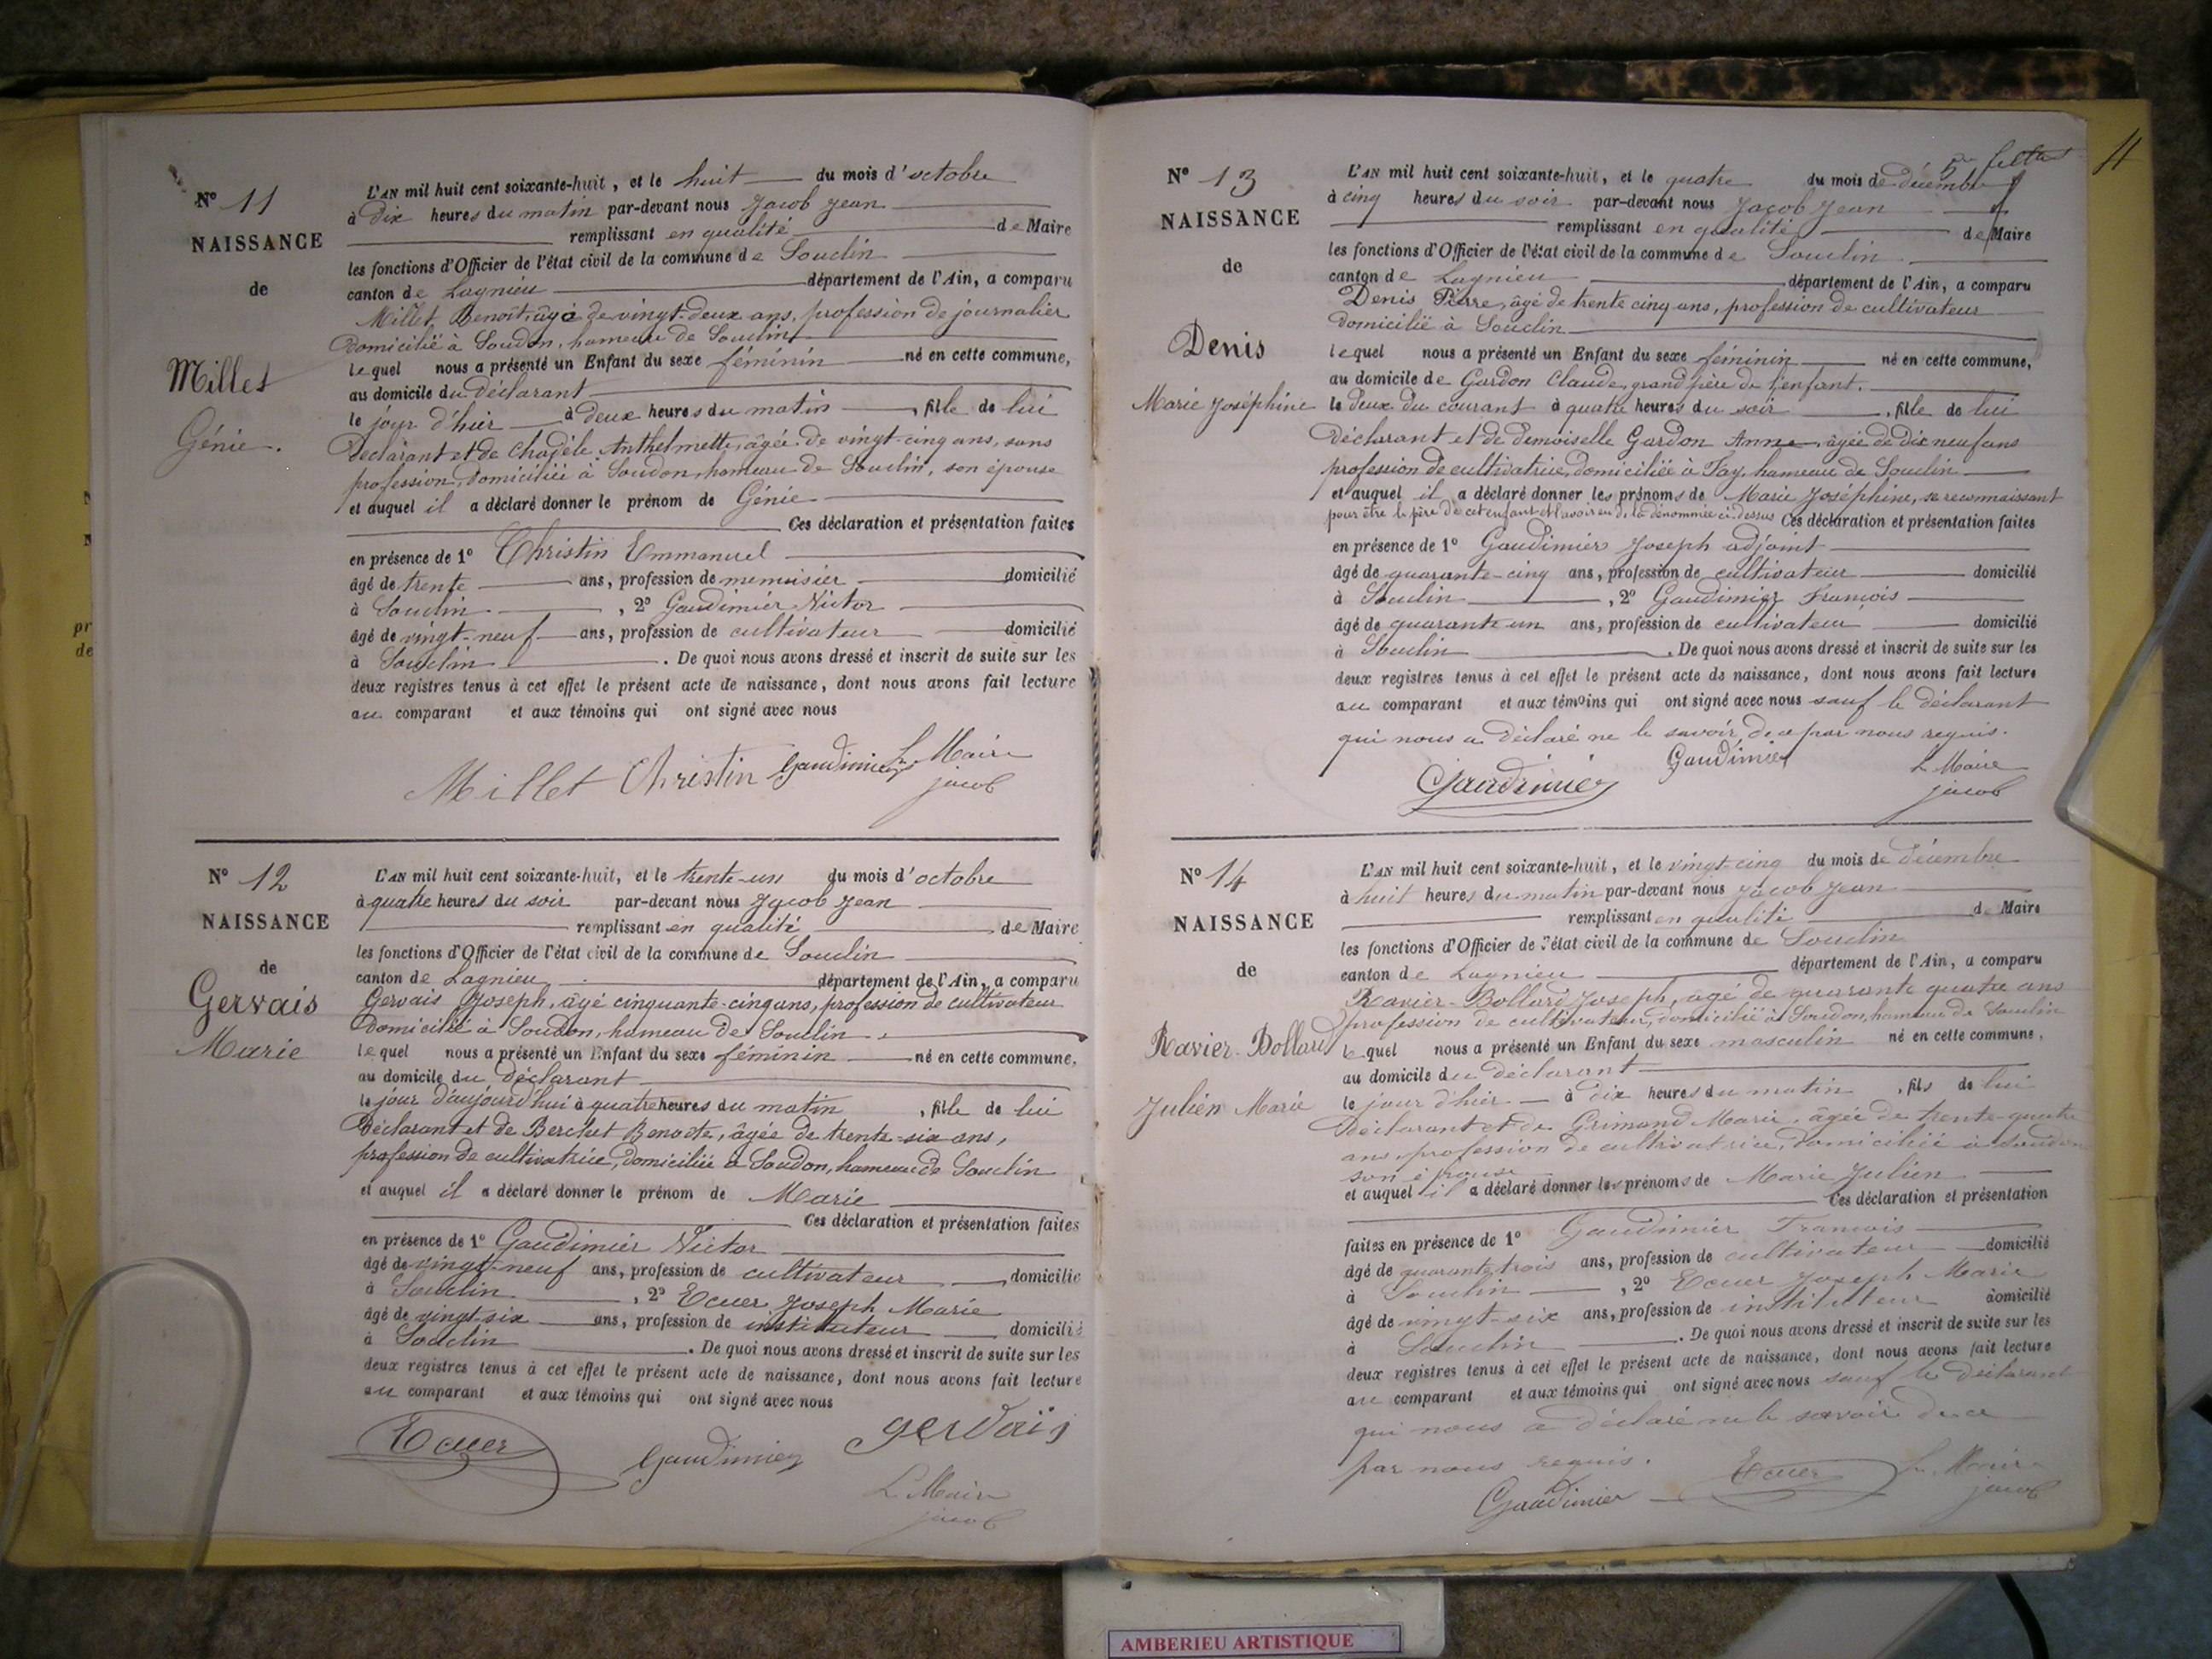 Nº 11
NAISSANCE
de
Millet
Génie.
L'AN mil huit cent soixante-huit, et le huit du mois d'octobre
à dix heures du matin par-devant nous Jacob Jean
remplissant en qualité de Maire
les fonctions d'Officier de l'état civil de la commune de Souclin
canton de Lagnieu département de l'Ain, a comparu
Millet Benoit, âgé de vingt-deux ans, profession de journalier
domicilié à Soudon, hameau de Souclin
lequel nous a présenté un Enfant du sexe féminin né en cette commune,
au domicile du déclarant
le jour d'hier à deux heures du matin, fille de lui
Déclarant et de Chapèle Anthelmette, âgée de vingt-cinq ans, sans
profession, domiciliée à Soudon, hameau de Souclin, son épouse
et auquel il a déclaré donner le prénom de Génie
Ces déclaration et présentation faites
en présence de 1º Christin Emmanuel
âgé de trente ans, profession de menuisier domicilié
à Souclin, 2º Gaudimier Victor
âgé de vingt-neuf ans, profession de cultivateur domicilié
à Souclin. De quoi nous avons dressé et inscrit de suite sur les
deux registres tenus à cet effet le présent acte de naissance, dont nous avons fait lecture
au comparant et aux témoins qui ont signé avec nous
Millet Christin Gaudimier Le Maire
jacob
Nº 12
NAISSANCE
de
Gervais
Marie
L'AN mil huit cent soixante-huit, et le trente-un du mois d'octobre
à quatre heures du soir par-devant nous Jacob Jean
remplissant en qualité de Maire
les fonctions d'Officier de l'état civil de la commune de Souclin
canton de Lagnieu département de l'Ain, a comparu
Gervais Joseph, âgé cinquante-cinq ans, profession de cultivateur
domicilié à Soudon, hameau de Souclin
lequel nous a présenté un Enfant du sexe féminin né en cette commune,
au domicile du déclarant
le jour d'aujourd'hui à quatre heures du matin, fille de lui
Déclarant et de Berchet Benoite, âgée de trente-six ans,
profession de cultivatrice, domiciliée à Soudon, hameau de Souclin
et auquel il a déclaré donner le prénom de Marie
Ces déclaration et présentation faites
en présence de 1º Gaudimier Victor
âgé de vingt-neuf ans, profession de cultivateur domicilié
à Souclin, 2º Ecuer Joseph Marie
âgé de vingt-six ans, profession de instituteur domicilié
à Souclin. De quoi nous avons dressé et inscrit de suite sur les
deux registres tenus à cet effet le présent acte de naissance, dont nous avons fait lecture
au comparant et aux témoins qui ont signé avec nous
Ecuer Gaudimier gervais
Le Maire
jacob
11
Nº 13
NAISSANCE
de
Denis
Marie Joséphine
L'AN mil huit cent soixante-huit, et le quatre du mois de décembre
à cinq heures du soir par-devant nous Jacob Jean
remplissant en qualité de Maire
les fonctions d'Officier de l'état civil de la commune de Souclin
canton de Lagnieu département de l'Ain, a comparu
Denis Pierre, âgé de trente cinq ans, profession de cultivateur
domicilié à Souclin
lequel nous a présenté un Enfant du sexe féminin né en cette commune,
au domicile de Gardon Claude, grand père de l'enfant.
le deux du courant à quatre heures du soir, fille de lui
Déclarant et de demoiselle Gardon Anne, âgée de dix neuf ans
profession de cultivatrice, domiciliée à Fay, hameau de Souclin
et auquel il a déclaré donner les prénoms de Marie Joséphine, se reconnaissant
pour être le père de cet enfant et l'avoir eu de la dénommée ci-dessus Ces déclaration et présentation faites
en présence de 1º Gaudimier Joseph adjoint
âgé de quarante-cinq ans, profession de cultivateur domicilié
à Souclin, 2º Gaudimier François
âgé de quarante un ans, profession de cultivateur domicilié
à Souclin. De quoi nous avons dressé et inscrit de suite sur les
deux registres tenus à cet effet le présent acte de naissance, dont nous avons fait lecture
au comparant et aux témoins qui ont signé avec nous sauf le déclarant
qui nous a déclaré ne le savoir, de ce par nous requis.
Gaudimier Gaudimier Le Maire
jacob
Nº 14
NAISSANCE
de
Ravier-Bollard
Julien Marie
L'AN mil huit cent soixante-huit, et le vingt-cinq du mois de décembre
à huit heures du matin par-devant nous Jacob Jean
remplissant en qualité de Maire
les fonctions d'Officier de l'état civil de la commune de Souclin
canton de Lagnieu département de l'Ain, a comparu
Ravier-Bollard Joseph, âgé de quarante quatre ans
profession de cultivateur, domicilié à Soudon, hameau de Souclin
lequel nous a présenté un Enfant du sexe masculin né en cette commune,
au domicile du déclarant
le jour d'hier à dix heures du matin, fils de lui
Déclarant et de Grimand Marie, âgée de trente-quatre
ans, profession de cultivatrice, domiciliée à Soudon
son épouse
et auquel il a déclaré donner les prénoms de Marie Julien
Ces déclaration et présentation
faites en présence de 1º Gaudimier François
âgé de quarante trois ans, profession de cultivateur domicilié
à Souclin, 2º Ecuer Joseph Marie
âgé de vingt-six ans, profession de instituteur domicilié
à Souclin. De quoi nous avons dressé et inscrit de suite sur les
deux registres tenus à cet effet le présent acte de naissance, dont nous avons fait lecture
au comparant et aux témoins qui ont signé avec nous sauf le déclarant
qui nous a déclaré ne le savoir de ce
par nous requis.
Gaudimier Ecuer Le Maire
jacob
AMBERIEU ARTISTIQUE